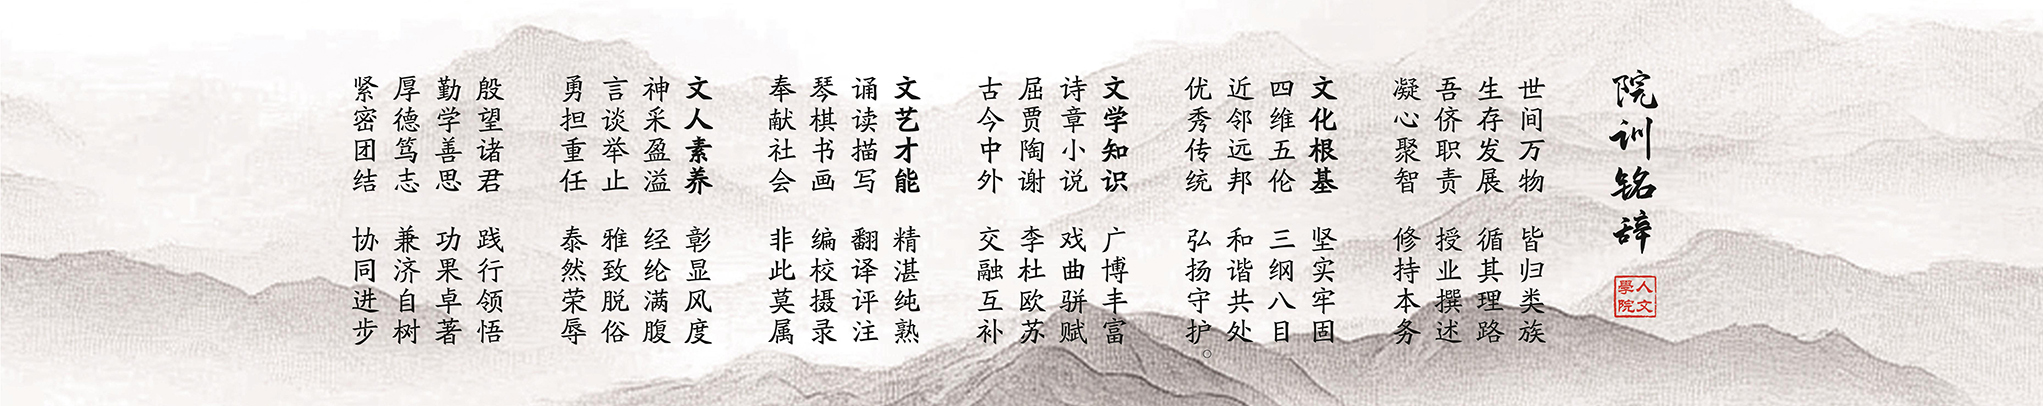 院训铭辞
人文
學院
世间万物 皆归类族
生存发展 循其理路
吾侪职责 授业撰述
凝心聚智 修持本务
文化根基 坚实牢固
四维五伦 三纲八目
近邻远邦 和谐共处
优秀传统 弘扬守护。
文学知识 广博丰富
诗章小说 戏曲骈赋
屈贾陶谢 李杜欧苏
古今中外 交融互补
文艺才能 精湛纯熟
诵读描写 翻译评注
琴棋书画 编校摄录
奉献社会 非此莫属
文人素养 彰显风度
神采盈溢 经纶满腹
言谈举止 雅致脱俗
勇担重任 泰然荣辱
殷望诸君 践行领悟
勤学善思 功果卓著
厚德笃志 兼济自树
紧密团结 协同进步